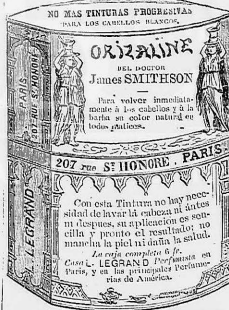 NO MAS TINTURAS PROGRESIVAS
PARA LOS CABELLOS BLANCOS
ORIZALINE
DEL DOCTOR
James SMITHSON
Para volver inmediata-
mente á los cabellos y á la
barba su color natural en
todos matices.
PARIS
207 RUE St HONORÉ
207 rue St HONORÉ. PARIS
LEGRAND
Con esta Tintura no hay nece-
sidad de lavar la cabeza ni antes
ni despues, su aplicacion es sen-
cilla y pronto el resultado; no
mancha la piel ni daña la salud.
La caja completa 6 fr.
Casa L. LEGRAND Perfumista en
Paris, y en las principales Perfume-
rias de América.